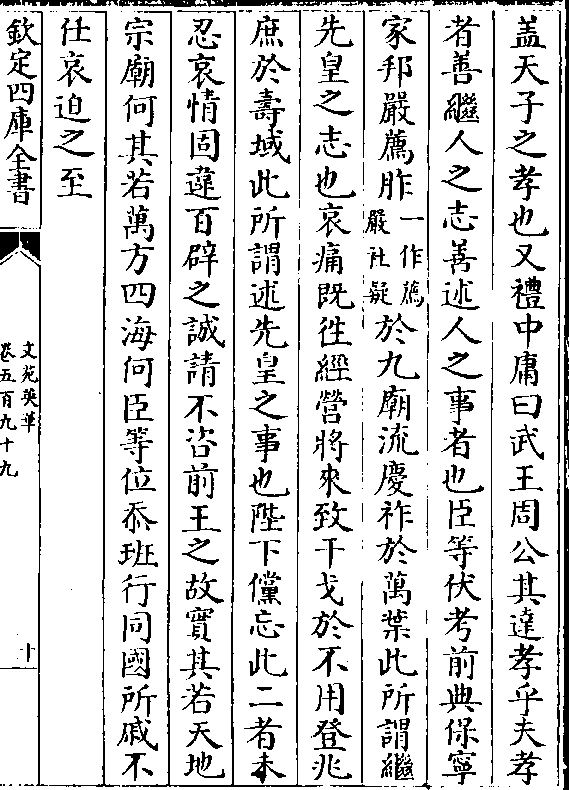 蓋天子之孝也又禮中庸曰武王周公其達孝乎夫孝
者善繼人之志善述人之事者也臣等伏考前典保寧
家邦嚴薦胙一作薦嚴社疑於九廟流慶祚於萬葉此所謂繼
先皇之志也哀痛既徃經營將來致干戈於不用登兆
庶於壽域此所謂述先皇之事也陛下儻忘此二者未
忍哀情固違百辟之誠請不咨前王之故實其若天地
宗廟何其若萬方四海何臣等位忝班行同國所戚不
仕哀迫之至
欽定四庫全書
文苑英華
卷五百九十九
十